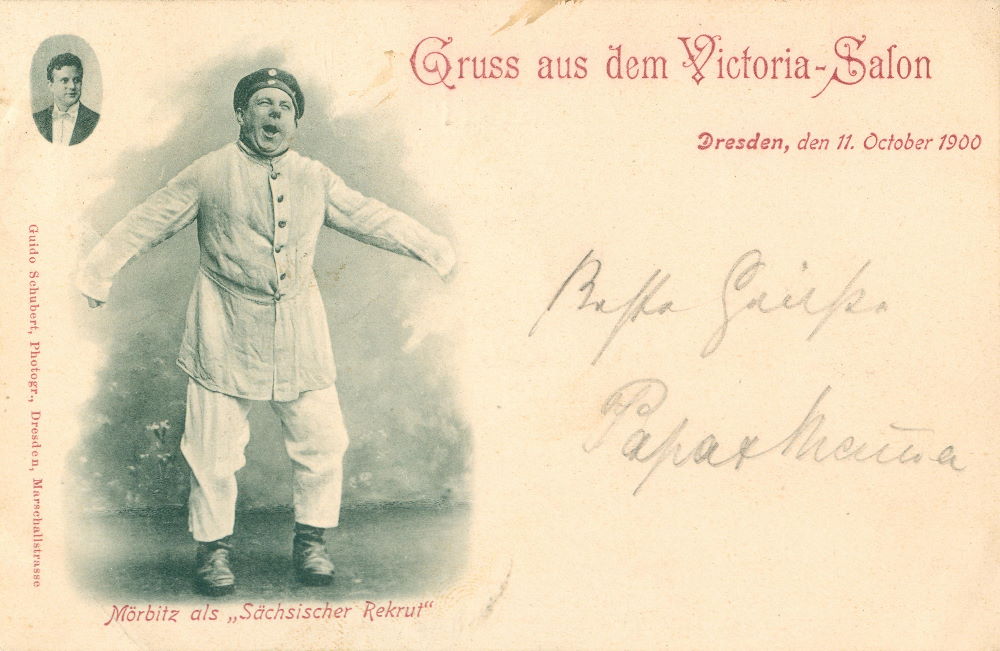 Gruss aus dem Victoria-Salon
Dresden, den 11. October 1900
Beste Grüße
Papa + Mama
Guido Schubert, Photogr., Dresden, Marschallstrasse
Mörbitz als „Sächsischer Rekrut“